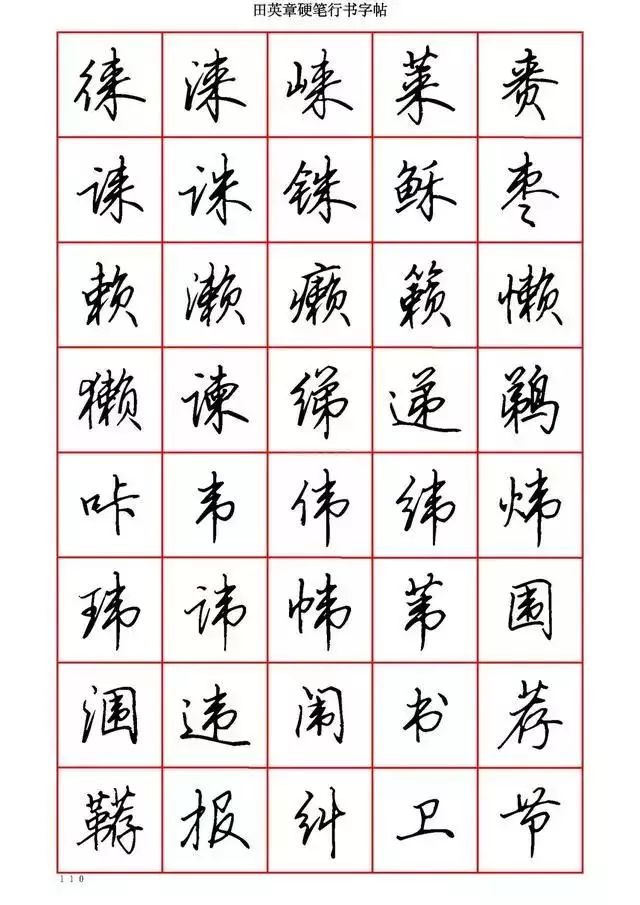 田英章硬笔行书字帖
徕 涞 崃 莱 赉
诔 诛 铢 稣 枣
赖 濑 癞 籁 懒
獭 谏 绨 递 鹈
咔 韦 伟 纬 炜
玮 讳 帏 苇 围
涠 违 闱 书 荐
鞯 报 纠 卫 节
110